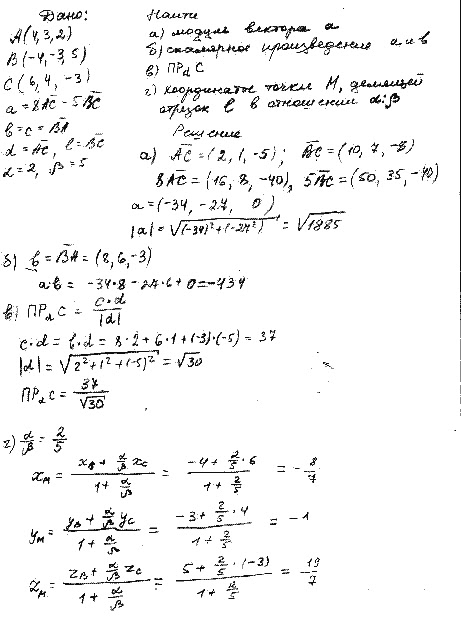 Дано:
A(4,3,2)
B(-4,-3,5)
C(6,4,-3)
a = 8AC - 5BC
b = c = BA
d = AC, l = BC
α = 2, β = 5
Найти
а) модуль вектора a
б) скалярное произведение a и b
в) ПРd C
г) координаты точки M, делящей
отрезок l в отношении α:β
Решение
а) AC = (2, 1, -5); BC = (10, 7, -8)
8AC = (16, 8, -40), 5BC = (50, 35, -40)
a = (-34, -27, 0)
|a| = √((-34)²+(-27²)) = √1885
б) b = BA = (8, 6, -3)
a·b = -34·8 - 27·6 + 0 = -434
в) ПРd C = c·d / |d|
c·d = b·d = 8·2 + 6·1 + (-3)·(-5) = 37
|d| = √(2²+1²+(-5)²) = √30
ПРd C = 37/√30
г) α/β = 2/5
xM = (xB + α/β xC) / (1 + α/β) = (-4 + 2/5 · 6) / (1 + 2/5) = -8/7
yM = (yB + α/β yC) / (1 + α/β) = (-3 + 2/5 · 4) / (1 + 2/5) = -1
zM = (zB + α/β zC) / (1 + α/β) = (5 + 2/5 · (-3)) / (1 + 2/5) = 19/7